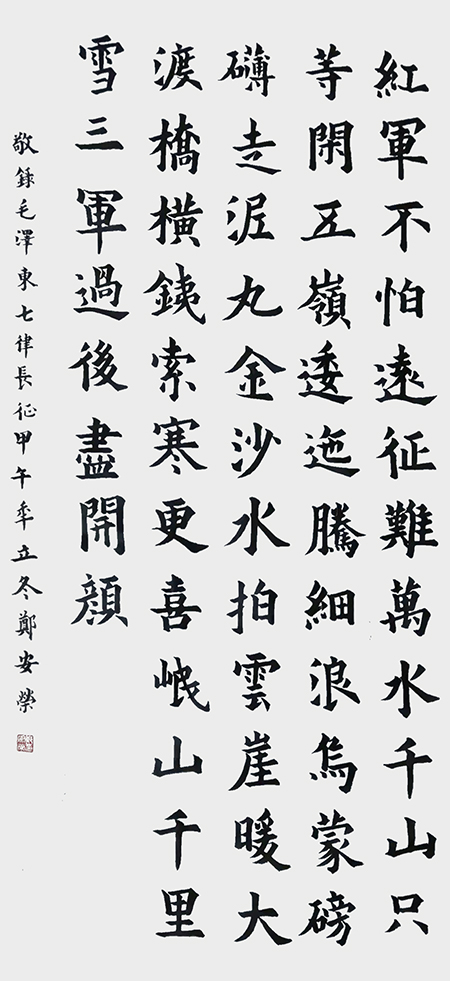 紅軍不怕遠征難萬水千山只
等閑五嶺逶迤騰細浪烏蒙磅
礴走泥丸金沙水拍雲崖暖大
渡橋橫銕索寒更喜岷山千里
雪三軍過後盡開顏
敬錄毛澤東七律長征甲午年立冬鄭安榮